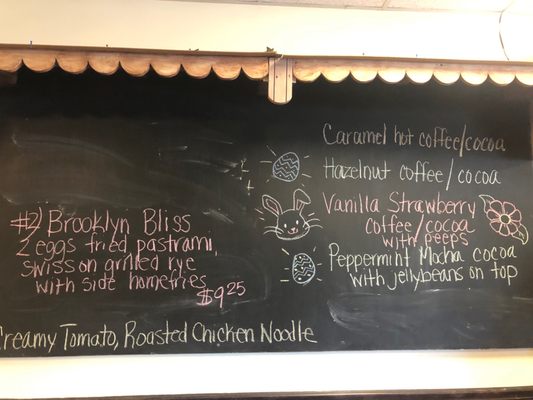 #2) Brooklyn Bliss
2 eggs fried, pastrami,
swiss on grilled rye
with side homefries
$9.25
Creamy Tomato, Roasted Chicken Noodle
Caramel hot coffee/cocoa
Hazelnut coffee/cocoa
Vanilla Strawberry
coffee/cocoa
with peeps
Peppermint Mocha cocoa
with jellybeans on top